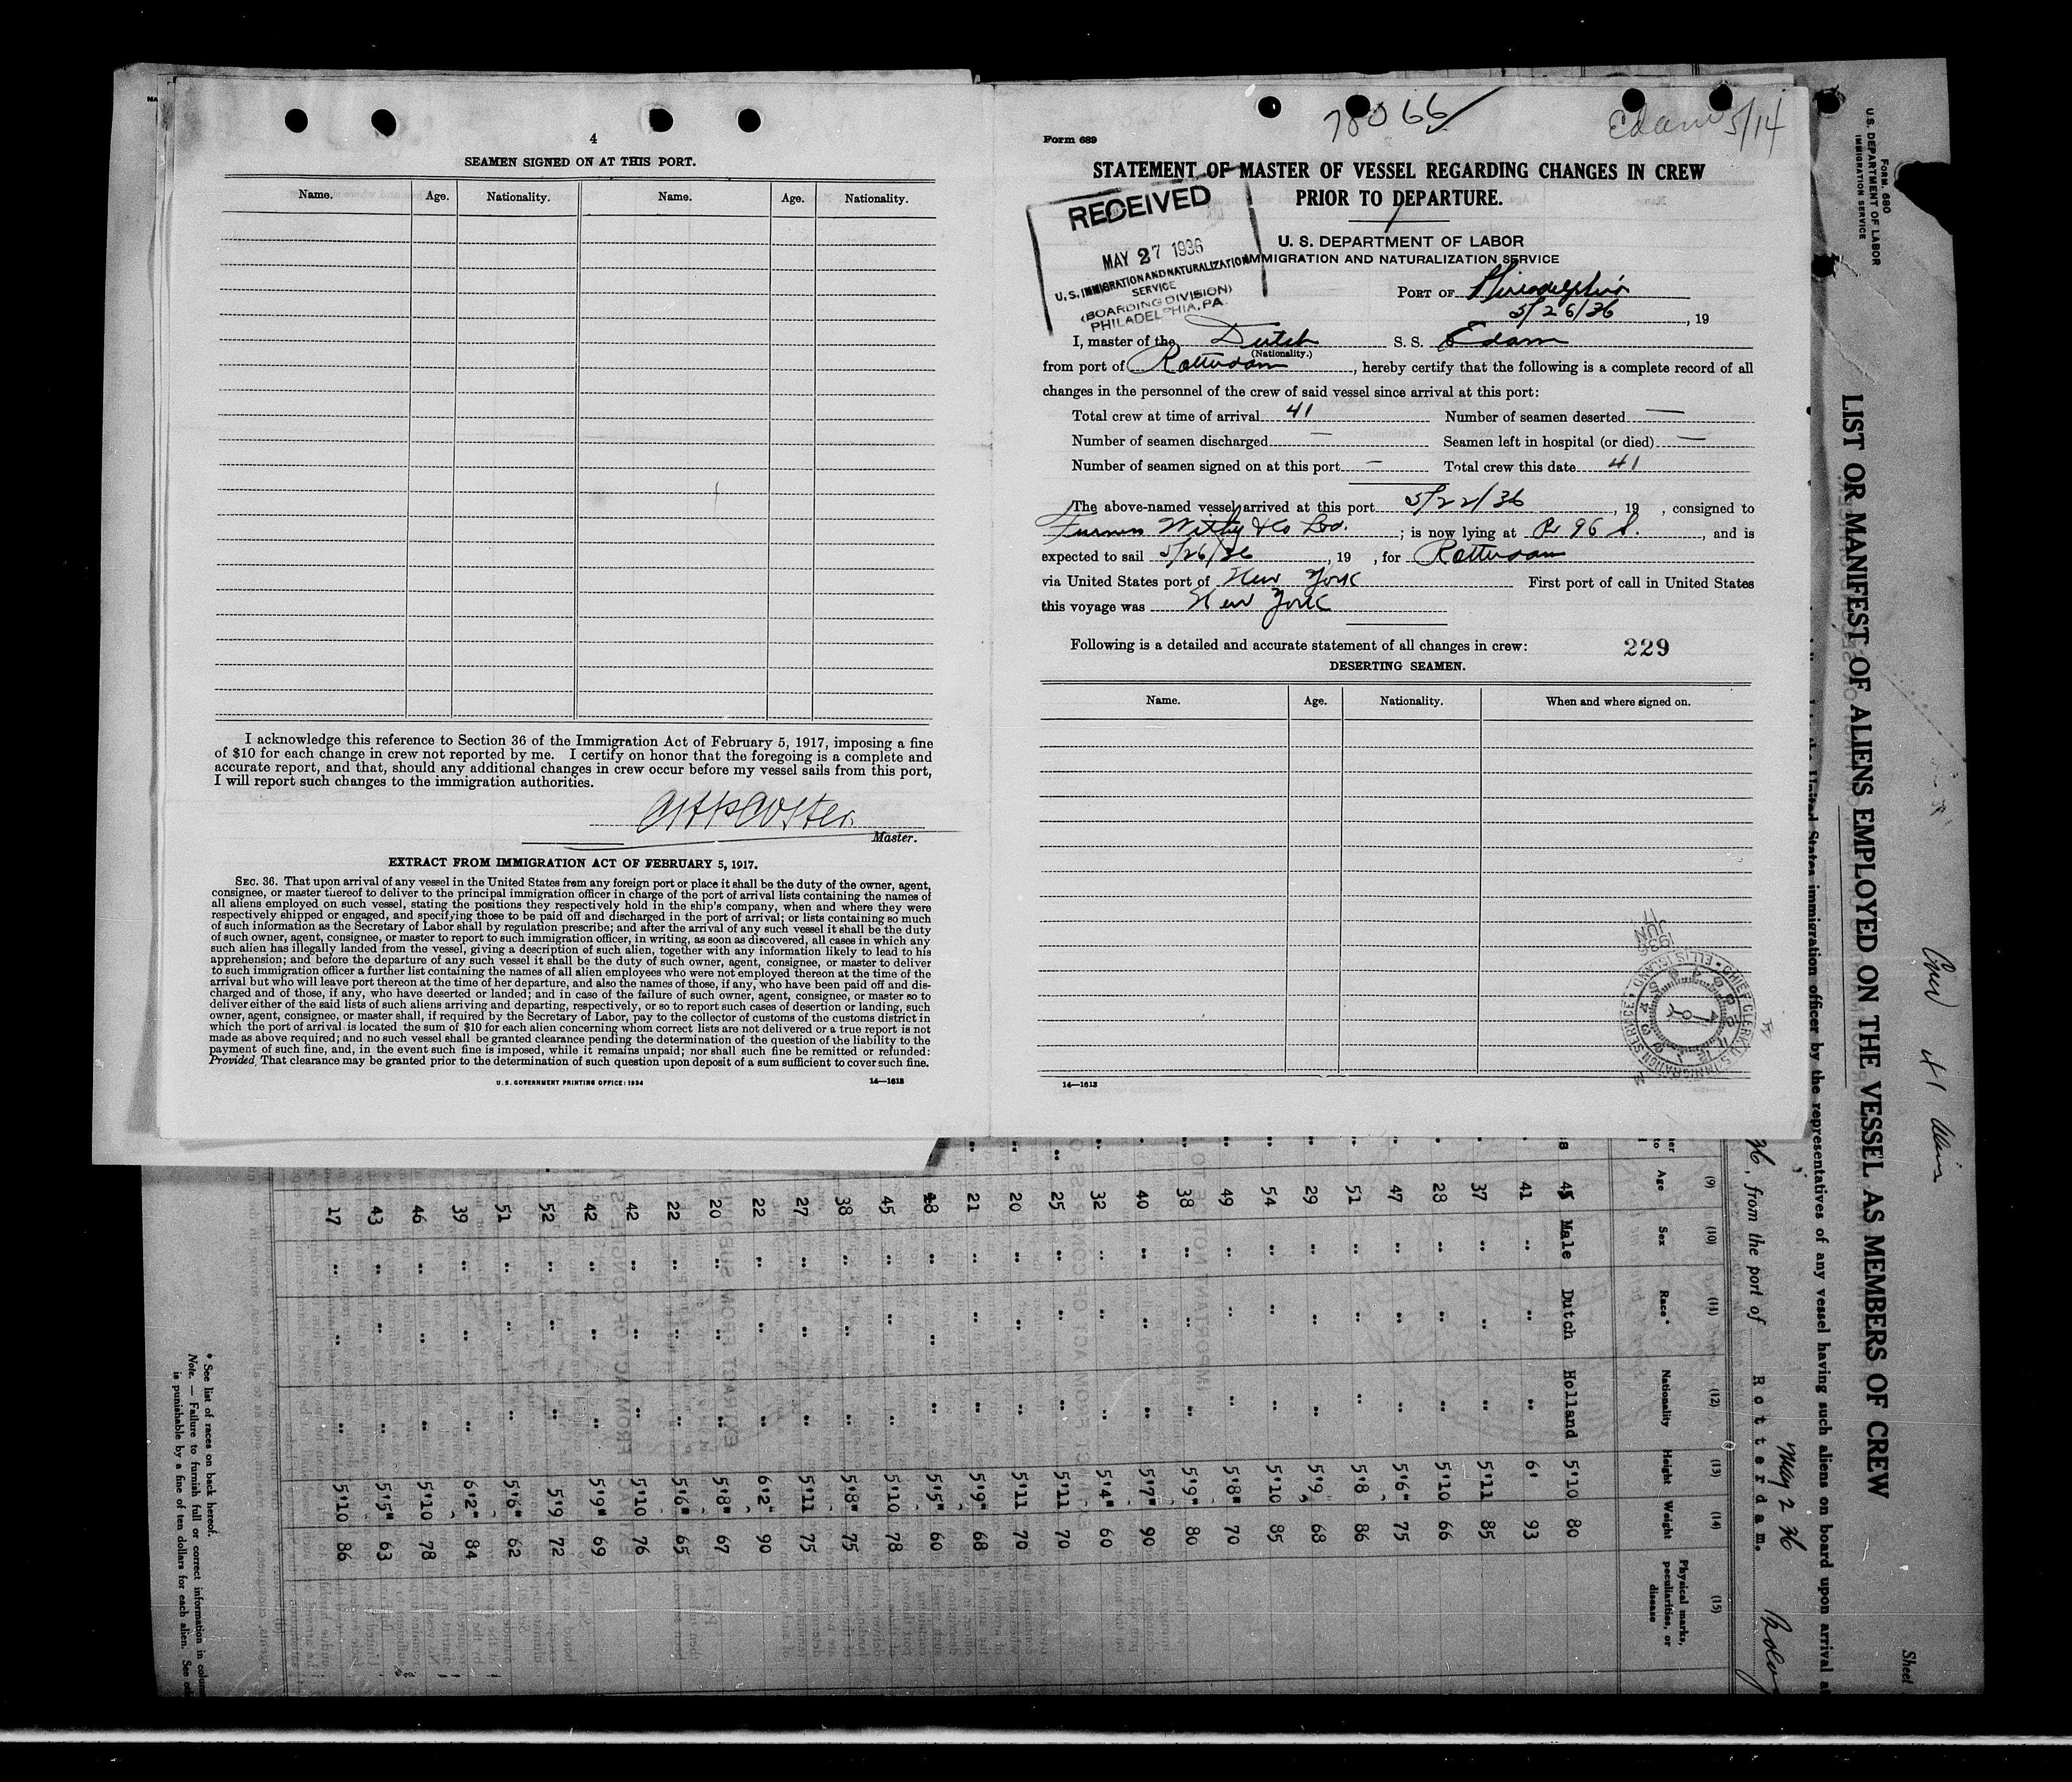 4
SEAMEN SIGNED ON AT THIS PORT.
Name. Age. Nationality. Name. Age. Nationality.
I acknowledge this reference to Section 36 of the Immigration Act of February 5, 1917, imposing a fine
of $10 for each change in crew not reported by me. I certify on honor that the foregoing is a complete and
accurate report, and that, should any additional changes in crew occur before my vessel sails from this port,
I will report such changes to the immigration authorities.
Master.
EXTRACT FROM IMMIGRATION ACT OF FEBRUARY 5, 1917.
SEC. 36. That upon arrival of any vessel in the United States from any foreign port or place it shall be the duty of the owner, agent,
consignee, or master thereof to deliver to the principal immigration officer in charge of the port of arrival lists containing the names of
all aliens employed on such vessel, stating the positions they respectively hold in the ship's company, when and where they were
respectively shipped or engaged, and specifying those to be paid off and discharged in the port of arrival; or lists containing so much
of such information as the Secretary of Labor shall by regulation prescribe; and after the arrival of any such vessel it shall be the duty
of such owner, agent, consignee, or master to report to such immigration officer, in writing, as soon as discovered, all cases in which any
such alien has illegally landed from the vessel, giving a description of such alien, together with any information likely to lead to his
apprehension; and before the departure of any such vessel it shall be the duty of such owner, agent, consignee, or master to deliver
to such immigration officer a further list containing the names of all alien employees who were not employed thereon at the time of the
arrival but who will leave port thereon at the time of her departure, and also the names of those, if any, who have been paid off and dis-
charged and of those, if any, who have deserted or landed; and in case of the failure of such owner, agent, consignee, or master so to
deliver either of the said lists of such aliens arriving and departing, respectively, or so to report such cases of desertion or landing, such
owner, agent, consignee, or master shall, if required by the Secretary of Labor, pay to the collector of customs of the customs district in
which the port of arrival is located the sum of $10 for each alien concerning whom correct lists are not delivered or a true report is not
made as above required; and no such vessel shall be granted clearance pending the determination of the question of the liability to the
payment of such fine, and, in the event such fine is imposed, while it remains unpaid; nor shall such fine be remitted or refunded:
Provided, That clearance may be granted prior to the determination of such question upon deposit of a sum sufficient to cover such fine.
U. S. GOVERNMENT PRINTING OFFICE: 1934 14—1613
78066 Edam 5/14
Form 689
STATEMENT OF MASTER OF VESSEL REGARDING CHANGES IN CREW
PRIOR TO DEPARTURE.
RECEIVED
MAY 27 1936
U. S. IMMIGRATION AND NATURALIZATION
SERVICE
(BOARDING DIVISION)
PHILADELPHIA, PA.
U. S. DEPARTMENT OF LABOR
IMMIGRATION AND NATURALIZATION SERVICE
PORT OF Philadelphia
5/26/36, 19
I, master of the Dutch S. S. Edam
(Nationality.)
from port of Rotterdam, hereby certify that the following is a complete record of all
changes in the personnel of the crew of said vessel since arrival at this port:
Total crew at time of arrival 41 Number of seamen deserted —
Number of seamen discharged — Seamen left in hospital (or died) —
Number of seamen signed on at this port — Total crew this date 41
The above-named vessel arrived at this port 5/22/36, 19 , consigned to
Furness Withy & Co Ltd. ; is now lying at Pr 96 S. , and is
expected to sail 5/26/36, 19 , for Rotterdam
via United States port of New York First port of call in United States
this voyage was New York
Following is a detailed and accurate statement of all changes in crew: 229
DESERTING SEAMEN.
Name. Age. Nationality. When and where signed on.
14—1613
Form 680
U.S. DEPARTMENT OF LABOR
IMMIGRATION SERVICE
Crew 41 Aliens
Sheet
LIST OR MANIFEST OF ALIENS EMPLOYED ON THE VESSEL AS MEMBERS OF CREW
United States immigration officer by the representatives of any vessel having such aliens on board upon arrival at
May 2 36
36, from the port of Rotterdam.
(9) (10) (11) (12) (13) (14) (15)
Age Sex Race* Nationality Height Weight Physical marks, peculiarities, or disease
45 Male Dutch Holland 5'10 80
41 " " " 6' 93
37 " " " 5'11 85
28 " " " 5'10 66
47 " " " 5'6" 75
51 " " " 5'8 86
29 " " " 5'9 68
54 " " " 5'10 85
49 " " " 5'8" 70
38 " " " 5'9" 80
40 " " " 5'7" 90
32 " " " 5'4" 60
25 " " " 5'11 70
20 " " " 5'11 70
21 " " " 5'9" 68
18 " " " 5'5" 60
45 " " " 5'10 78
38 " " " 5'8" 75
27 " " " 5'11 75
22 " " " 6'2" 90
20 " " " 5'8" 67
22 " " " 5'6" 65
42 " " " 5'10 76
42 " " " 5'9" 69
52 " " " 5'9 72
51 " " " 5'6" 62
39 " " " 6'2" 84
46 " " " 5'10 78
43 " " " 5'5" 63
17 " " " 5'10 86
* See list of races on back hereof.
Note. — Failure to furnish full or correct information in columns
is punishable by a fine of ten dollars for each alien. See